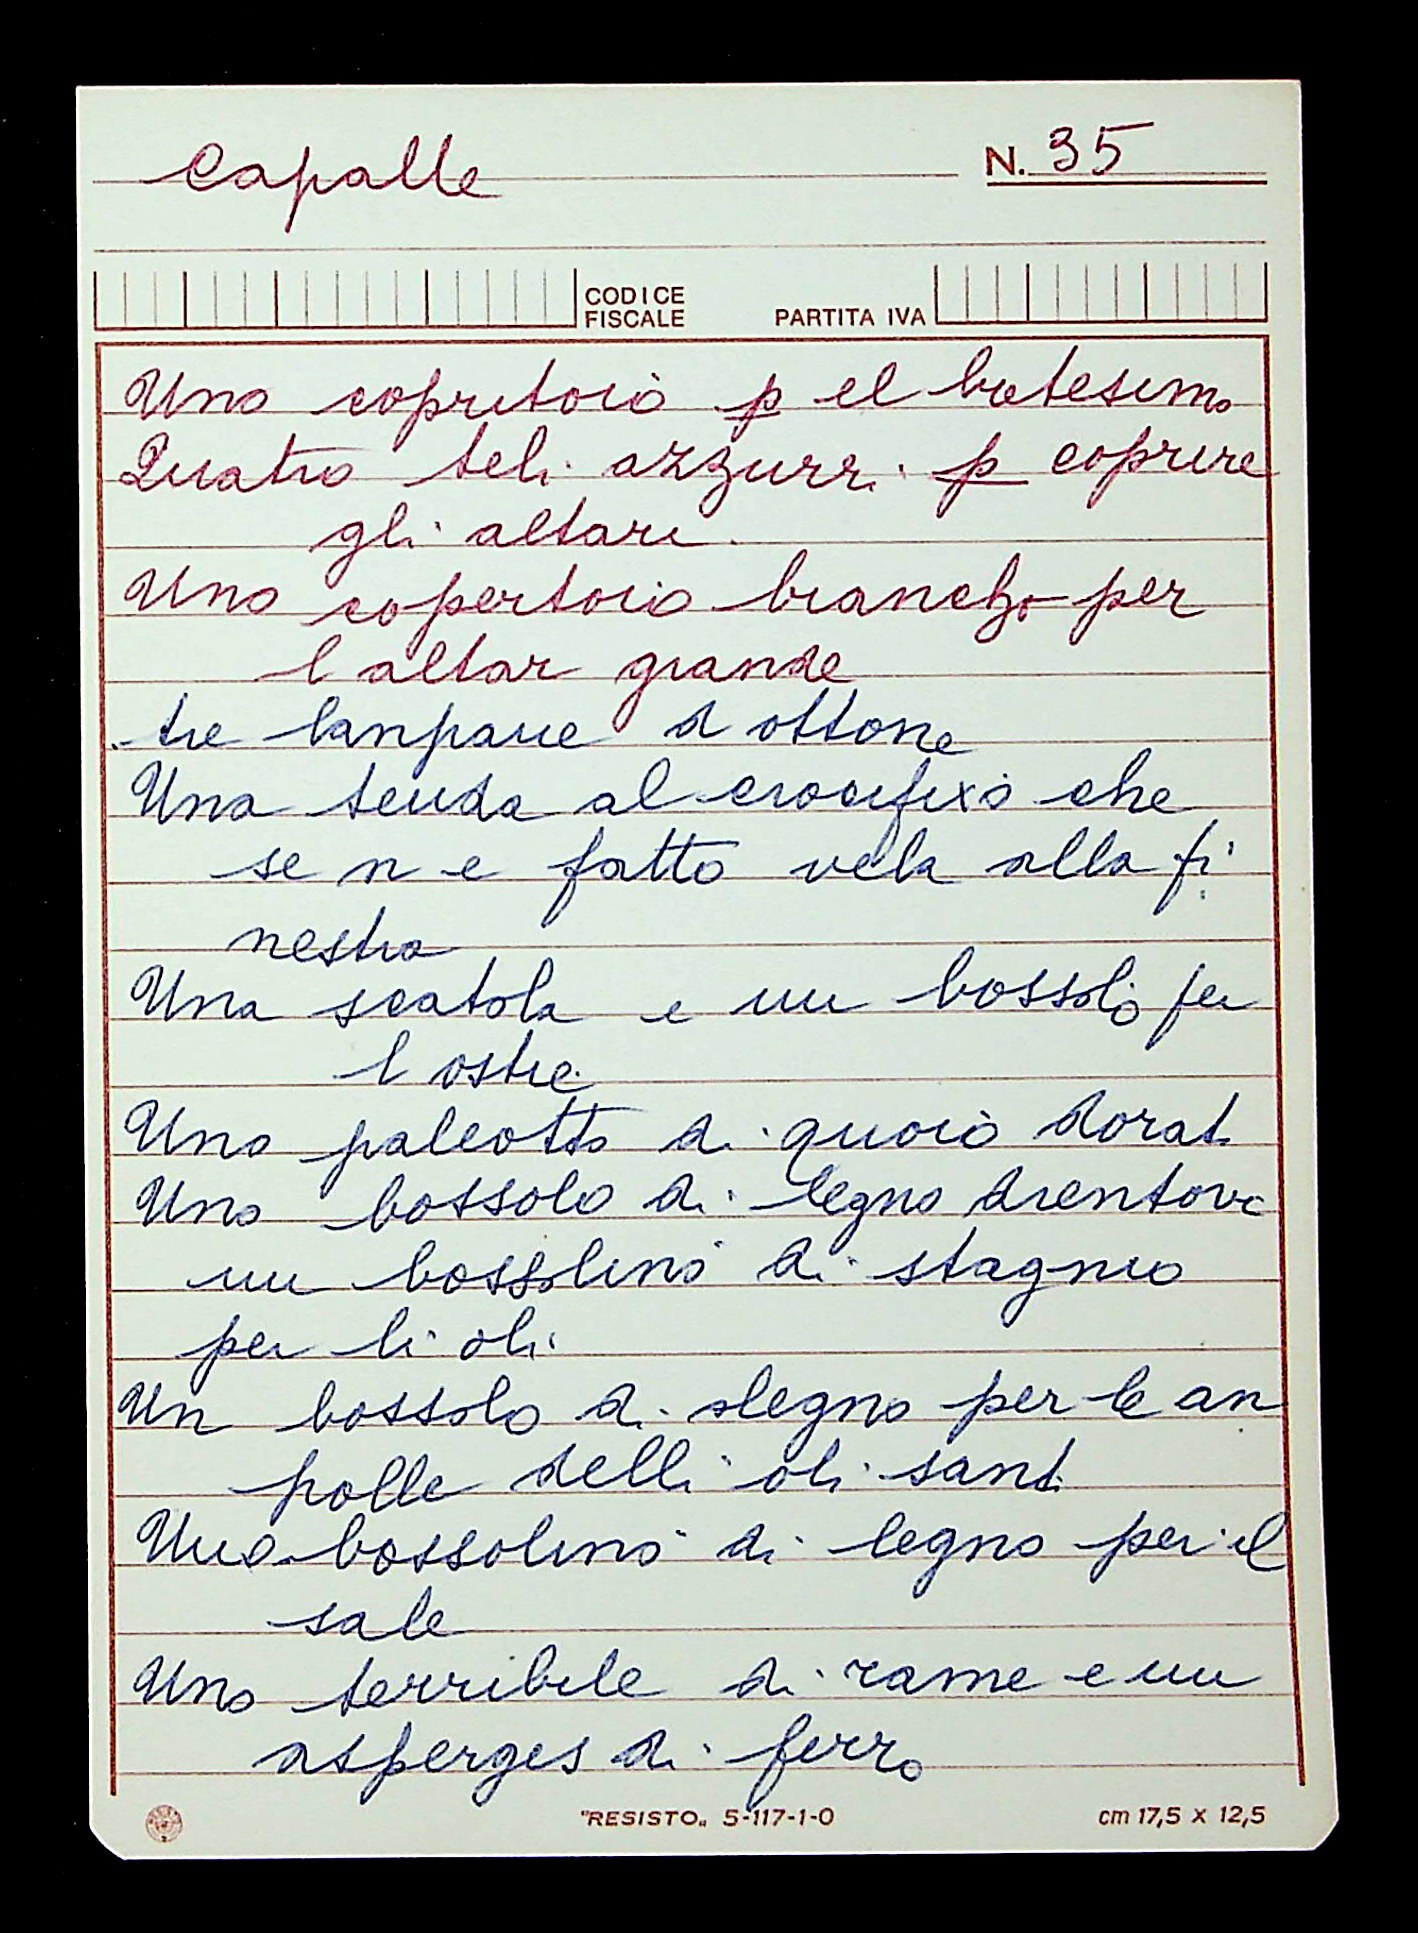 Capalle N. 35
CODICE FISCALE PARTITA IVA
Uno copritoio p el batesimo
Quatro teli azzurri p coprire
gli altari.
Uno copertoio biancho per
l altar grande
tre lanpane d ottone
Una tenda al crocifixo che
se n e fatto vela alla fi
nestra
Una scatola e un bossolo per
l ostie
Uno paleotto di quoio dorat.
Uno bossolo di legno drentovi
un bossolino di stagnio
per li oli
Un bossolo di legno per le an
polle delli oli sant.
Uno bossolino di legno per il
sale
Uno terribile di rame e un
asperges di ferro
"RESISTO" S-117-1-0 cm 17,5 x 12,5